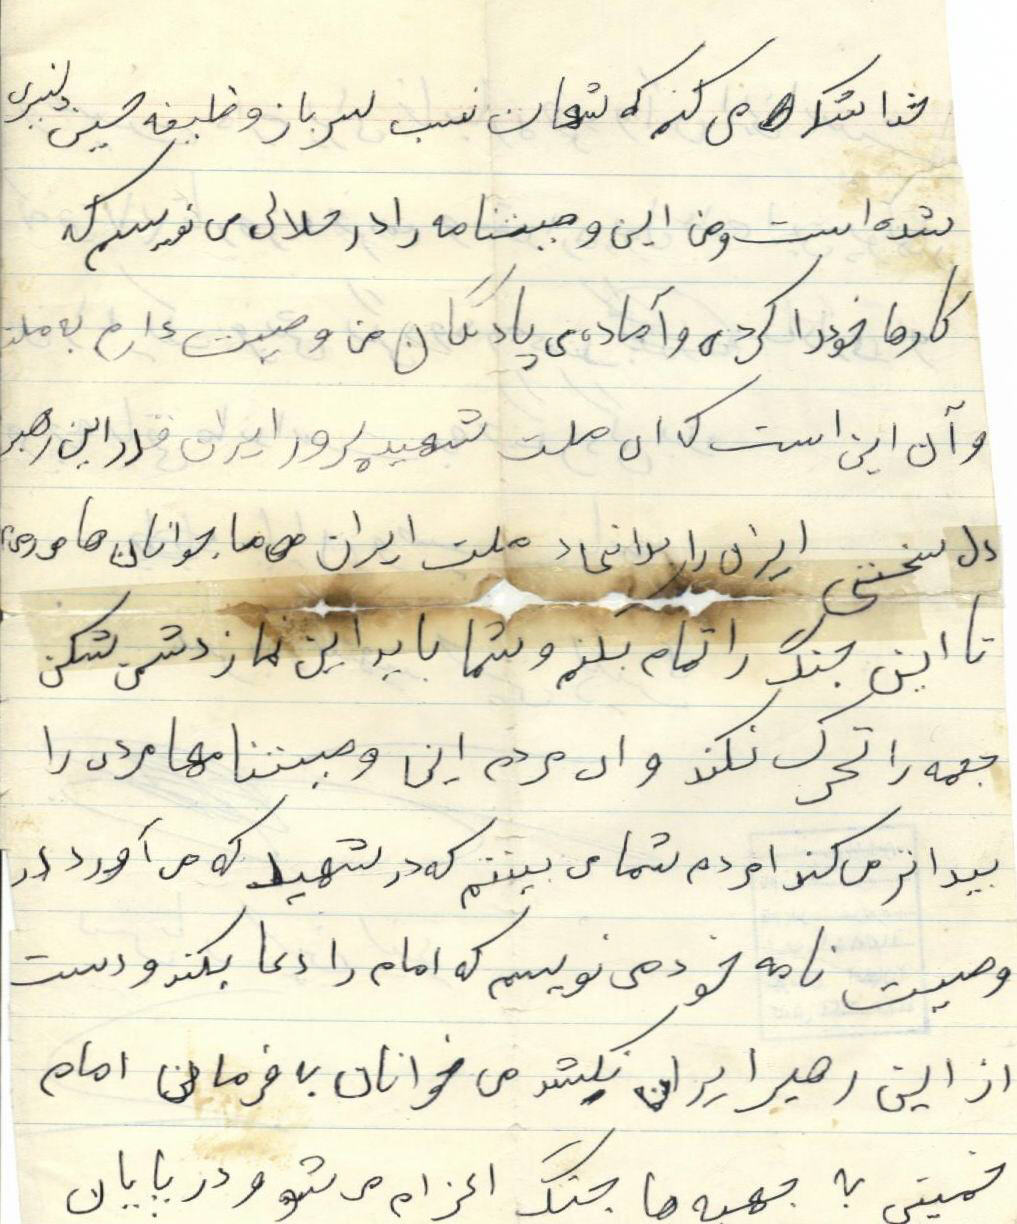 خدا شکر می کنم که شهادت نسیب سرباز وظیفه حسین دلبری
شده است و من این وصیتنامه را در حالی می نویسم که
کارها خود را کرده و آماده می پادگان من وصیت دارم به ملت
و آن این است که ای ملت شهید پرور ایران قدر این رهبر
دل سختی ایران را بدانید ملت ایران ما جوانان ها
تا این جنگ را تمام بکنم و شما باید این نماز دشمن شکن
جمعه را تحرک نکند و ای مردم این وصیتنامها مردی را
بیدانر می کند مردم شما می بینم که در شهید که می آورد در
وصیت نامه خود می نویسم که امام را دعا بکند و دست
از این رهبر ایران نکشد می خوانان به فرمان امام
خمینی به جبهه ها جنگ اعزام می شو و در پایان